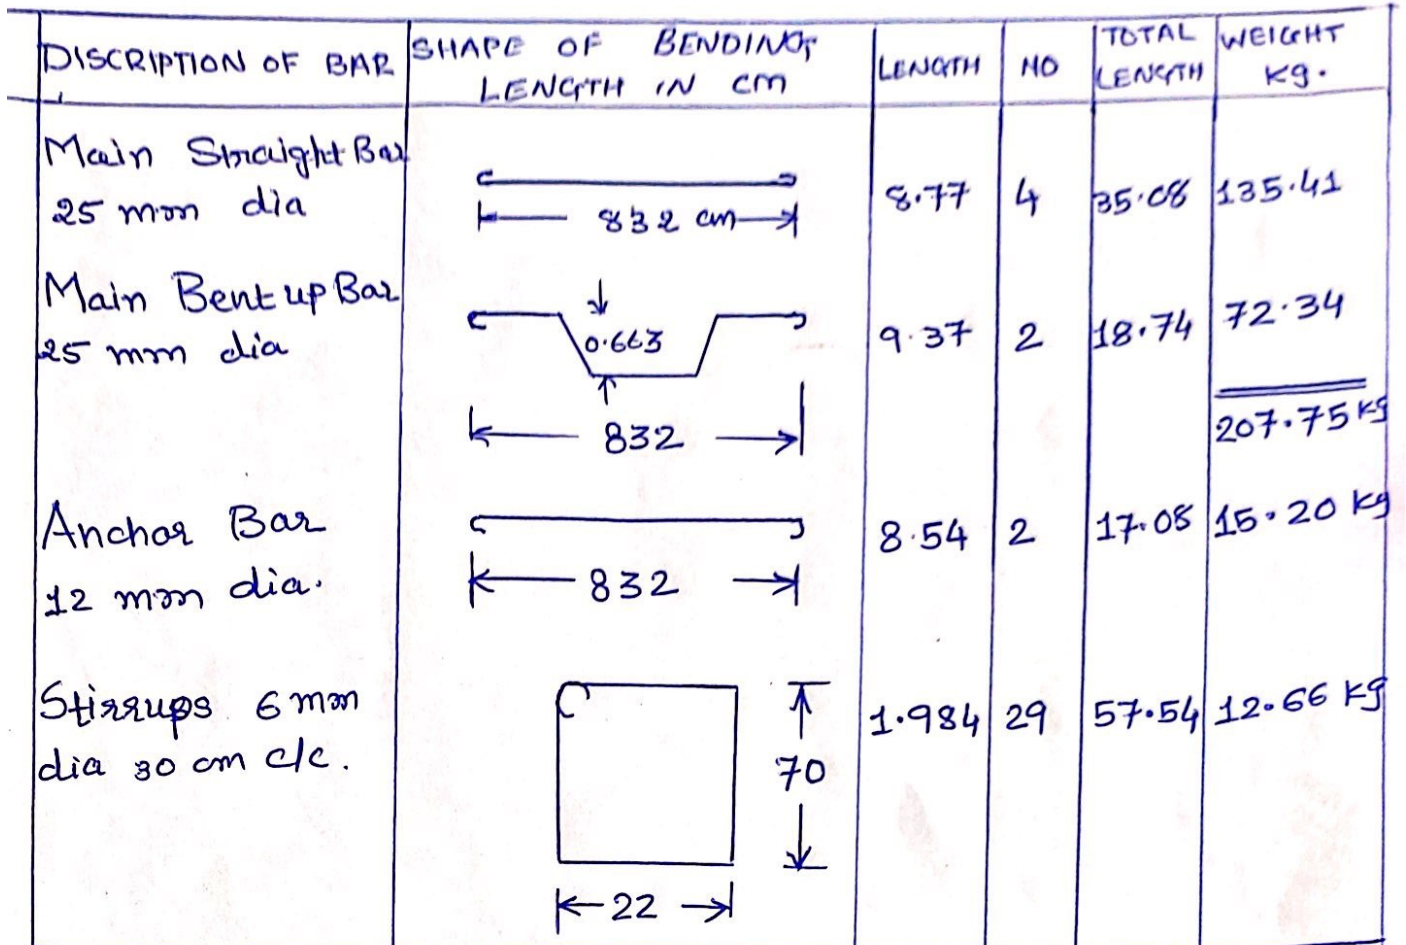 DISCRIPTION OF BAR
SHAPE OF BENDING
LENGTH IN cm
LENGTH
NO
TOTAL
LENGTH
WEIGHT
Kg.
Main Straight Bar
25 mm dia
832 cm
8.77
4
35.08
135.41
Main Bent up Bar
25 mm dia
0.663
832
9.37
2
18.74
72.34
207.75 Kg
Anchor Bar
12 mm dia.
832
8.54
2
17.08
15.20 Kg
Stirrups 6 mm
dia 30 cm c/c.
70
22
1.984
29
57.54
12.66 Kg